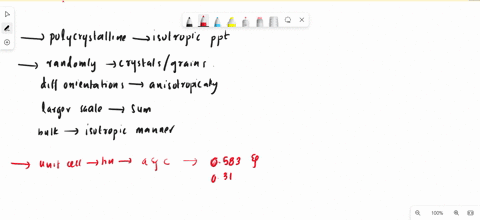 → polycrystalline → isotropic ppt
→ randomly → crystals/grains.
diff orientations → anisotropically
larger scale → sum
bulk → isotropic manner
→ unit cell → hu → a & c → 0.583 &
0.31
100%